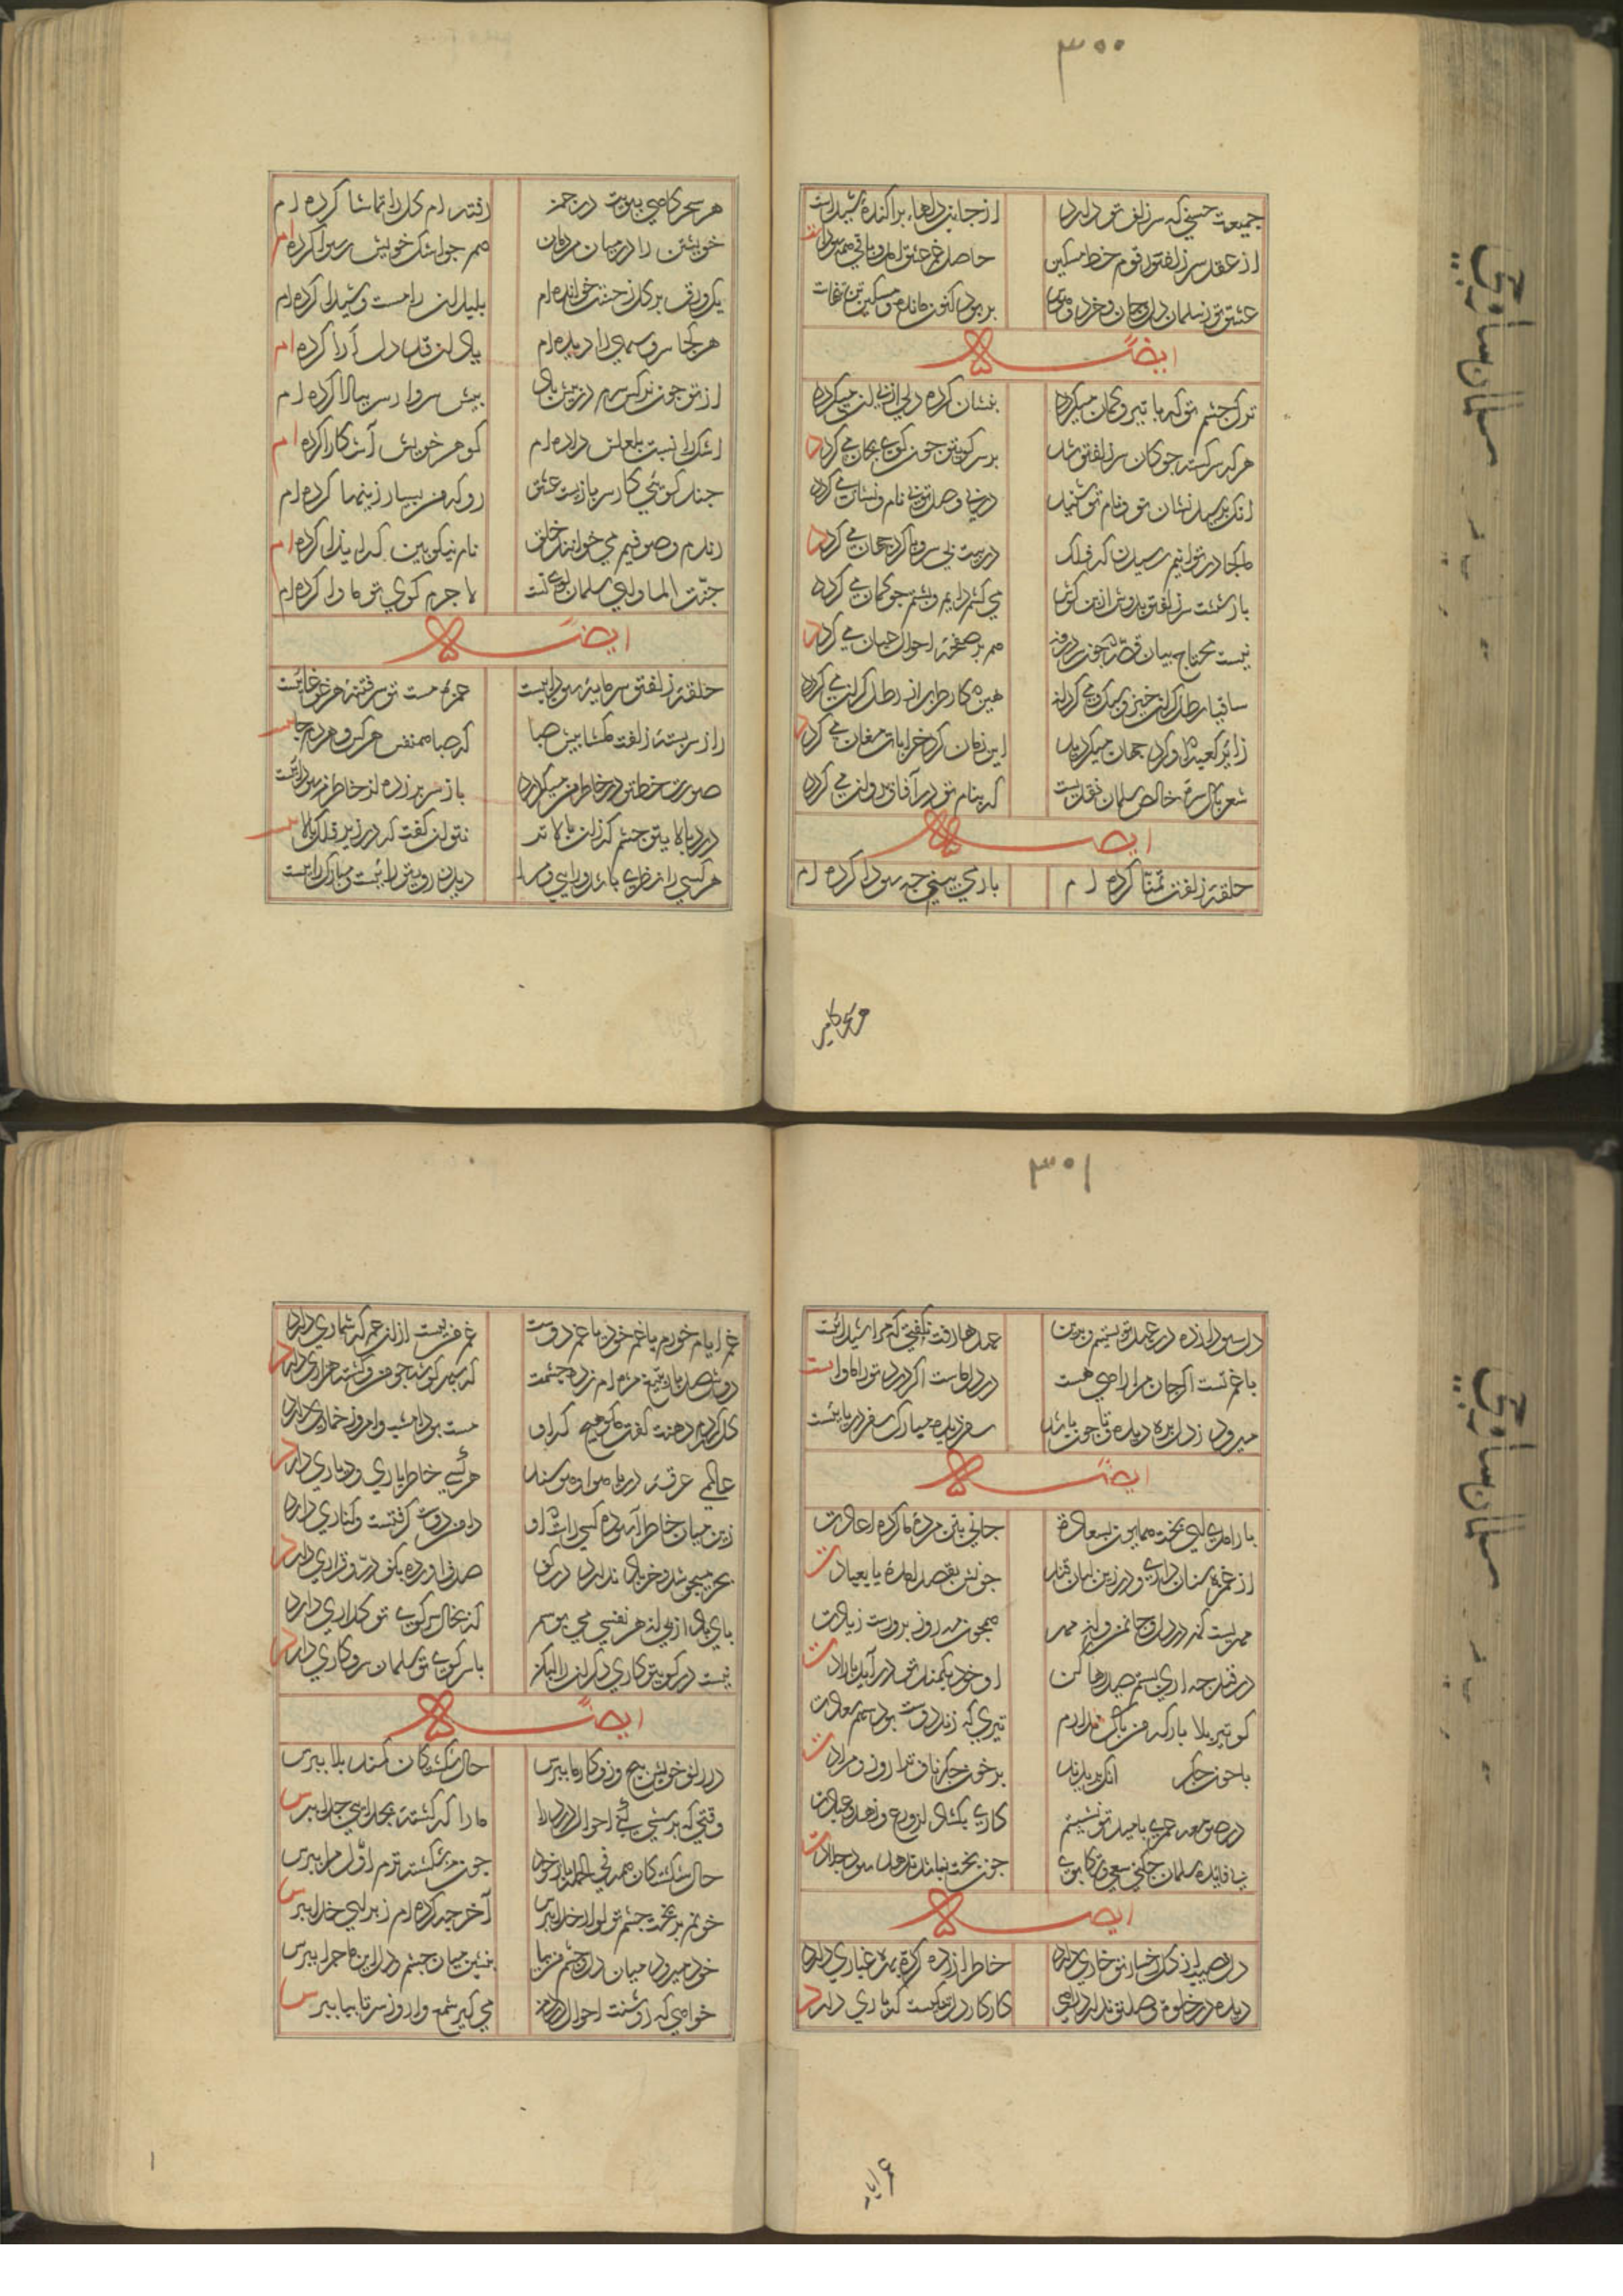 ۳۰۰
جمعیت حسنی که سر زلف تو دارد از جانب دلهاء پراکندهٔ شیداست
از عقد سر زلف تو و رقوم خط مشکین حاصل غم عشق آمد و باقی همه سوداست
عشق تو ز سلمان دل و جان و خرد و هوش بربود کنون مانده و مسکین تن تنهاست
ایضاً
ترک چشم تو که با تیر و کمان میگردد بنشان کرده دلی از پی آن میگردد
هر که سرگشته چوکان سر زلف تو شد بر سر کویش چون کوی بجان می گردد
انک پرسید نشان تو و نام تو شنید در پی وصل تو بی نام و نشان می گردد
ما کجا در تو توانیم رسیدن که فلک در پیت بی سر و پا کرد جهان می گردد
باز پشت سر زلف تو بدوش از بن کوش می کشم دایم و پشتم چو کمان می گردد
نیست محتاج بیان قصه که خون در دونم هم بر صفحهٔ احوال عیان می گردد
ساقیا رطل کران خیز و سبک می کردان هین که کار طرب از رطل کران می گردد
زایر کعبه که او کرد جهان میکردید این زمان کرد خرابات مغان می گردد
شعر پاک سرهٔ خالص سلمان نقدیست که بنام تو در آفاق روان می گردد
ایضاً
حلقهٔ زلفت تمنا کرده ام باز می بینی چه سودا کرده ام
هر سحر کاهی
هر سحر کاهی ببویت در چمن رفته ام کل را تماشا کرده ام
خویشتن را در میان مردمان همچو اشک خویش رسوا کرده ام
یک ورق بر کل ز حسنت خوانده ام بلبلان را مست و شیدا کرده ام
هر کجا سرو سهی را دیده ام یاد آن قد دل آرا کرده ام
از تو چون نرکس سرم در پیش باد پیش سرو ار سر ببالا کرده ام
اشک را نسبت بلعلش داده ام کوهر خویش آشکارا کرده ام
چند کوئی کار سر بازیست عشق رو که من بسیار ازینها کرده ام
رندم و صوفیم می خوانند خلق نام نیکو بین که ام پیدا کرده ام
جنت الماوی سلمان کوی تست لاجرم کوی تو ماوا کرده ام
ایضاً
حلقهٔ زلف تو سرمایهٔ سوداییست غمزهٔ مست تو سرفتنهٔ هر غوغاییست
راز سربستهٔ زلفت مکشا پیش صبا که صبا همنفس هر کس و هر دم جاییست
صورت خط تو در خاطر من میگردد باز سر بر زده از خاطر من سوداییست
درد بالای تو چشم کزان بالاتر نتوان کفت که در زیر فلک بالاییست
هر کسی را نظری باشد و رایی و مرا دیدن روی تو راییست و مبارک راییست
۳۰۱
دل سودا زده در عهد تو بستیم و برین عهدها رفت نکفتی که مرا شیداییست
با غم تست اگر جان مرا رامی هست درد دلهاست اگر درد تو را ماواییست
میرود ز دل بره دیده و تا چون باشد سفر دیده مبارک سفر دریاییست
ایضاً
باز آمدی ای بخت همایون بسعادت جانی بتن مرده ما کرد اعادت
از غمزه سنان داری و در زیر لبان قند خونش بقصد آمدهٔ یا بعیادت
مهریست که در دل و جان من و آن مهر همچون مه روز بروزست زیادت
در قید چه آری بستم صید رها کن او خود بکمند تو در آید بارادت
کو تیر بلا بار که من باک ندارم تیری که زند دوست بود سهم سعادت
با خون جکر آنک بپرید ند بر خون جکر ناف ترا روز ولادت
در صومعه عمری بامید تو نشستیم کاری نکشاد از ورع و زهد و عبادت
بی فایده سلمان چکنی سعی و تکاپوی چون بخت نباشد ندهد سود جلادت
ایضاً
دل نصیب از کل رخسار تو خاری دارد خاطر آزرده کرد ره غباری دارد
دیده در خلوت وصل تو ندارد راهی کار کار دل ماست که باری دارد
غم ایام
غم ایام خورم یا غم خود یا غم دوست غم من نیست ازان غم که شماری دارد
دوش صد بار بتیغ مژه ام زد چشمت که بهر کوشه چو من کشته هزاری دارد
کل کردم دهنت کفت مکو هیچ که او مست بود امشب و امروز خماری دارد
عالمی غرقهٔ دریای هوا و هوسند هر کسی خاطر یاری و دیاری دارد
زین میان خاطر آسوده کسی راست که او دامن دوست کرفتست و کناری دارد
بحر میجوشد و خر باد ندارد در کف صدف آورده بکف در و قراری دارد
پای باد از پی آن هر نفسی می بوسم که بخاک سر کوی تو گذاری دارد
نیست در کوی تو کاری دکران را لیکن با سر کوی تو سلمان سر و کاری دارد
ایضاً
در زلف خویش پیچ و زو کار ما بپرس حال شکستگان کمند بلا بپرس
وقتی که پرسشی کنی احوال درد ما ما را که کشتهٔ بجدایی جدا بپرس
حال شکستگان همه فی الجمله باز خود چون من شکسته ترم اول مرا بپرس
خونم بریخت چشم تو از وی خدا بپرس آخر چه کرده ام ز برای خدا بپرس
خون میرود میان دل و چشم من بیا بنشین میان چشم و دل این ماجرا بپرس
خواهی که روشنت احوال درد من می گیر شمع وار و ز سر تا بپا بپرس
سلمان ساوجی
سلمان ساوجی